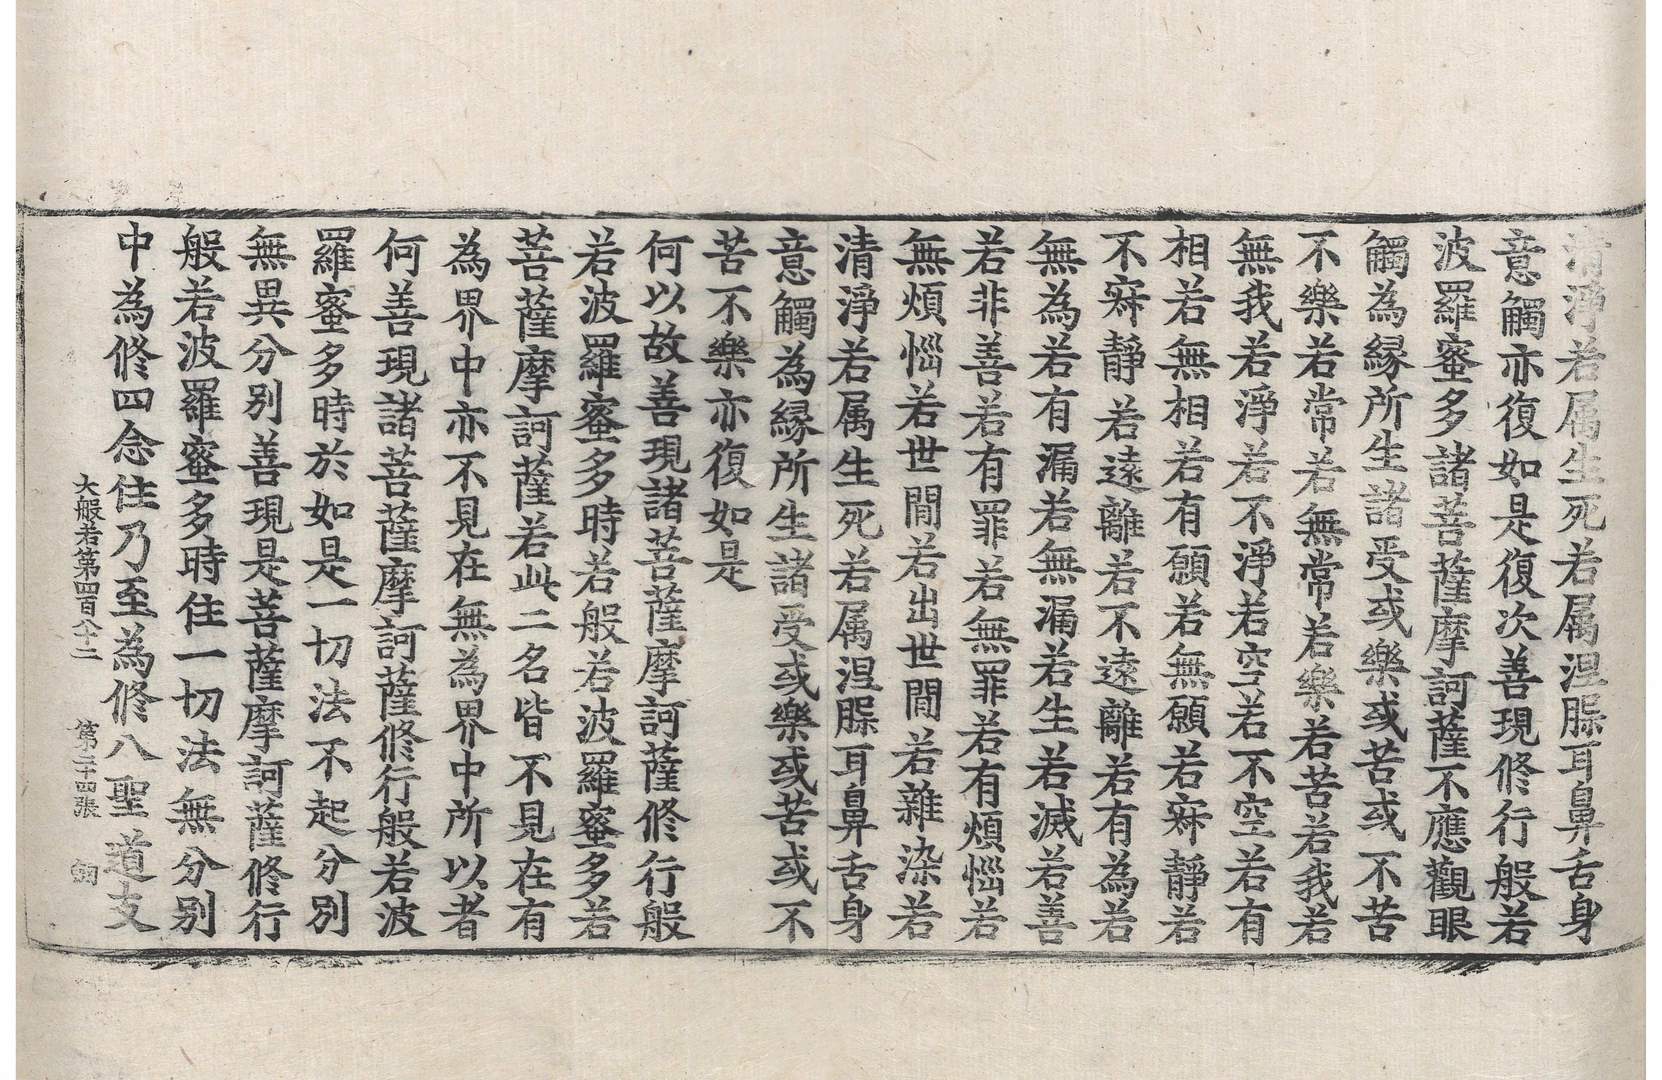 清淨若属生死若属涅縣耳鼻舌身
意觸亦復如是復次善現修行般若
波羅蜜多諸菩薩摩訶薩不應觀眼
觸為緣所生諸受或樂或苦或不苦
不樂若常若無常若樂若苦若我若
無我若淨若不淨若空若不空若有
相若無相若有願若無願若寂靜若
不寂靜若遠離若不遠離若有為若
無為若有漏若無漏若生若滅若善
若非善若有罪若無罪若有煩惱若
無煩惱若世間若出世間若雜染若
清淨若属生死若属涅縣耳鼻舌身
意觸為緣所生諸受或樂或苦或不
苦不樂亦復如是
何以故善現諸菩薩摩訶薩修行般
若波羅蜜多時若般若波羅蜜多若
菩薩摩訶薩若此二名皆不見在有
為界中亦不見在無為界中所以者
何善現諸菩薩摩訶薩修行般若波
羅蜜多時於如是一切法不起分別
無異分別善現是菩薩摩訶薩修行
般若波羅蜜多時住一切法無分別
中為修四念住乃至為修八聖道支
大般若第四百八十二 第二十四張